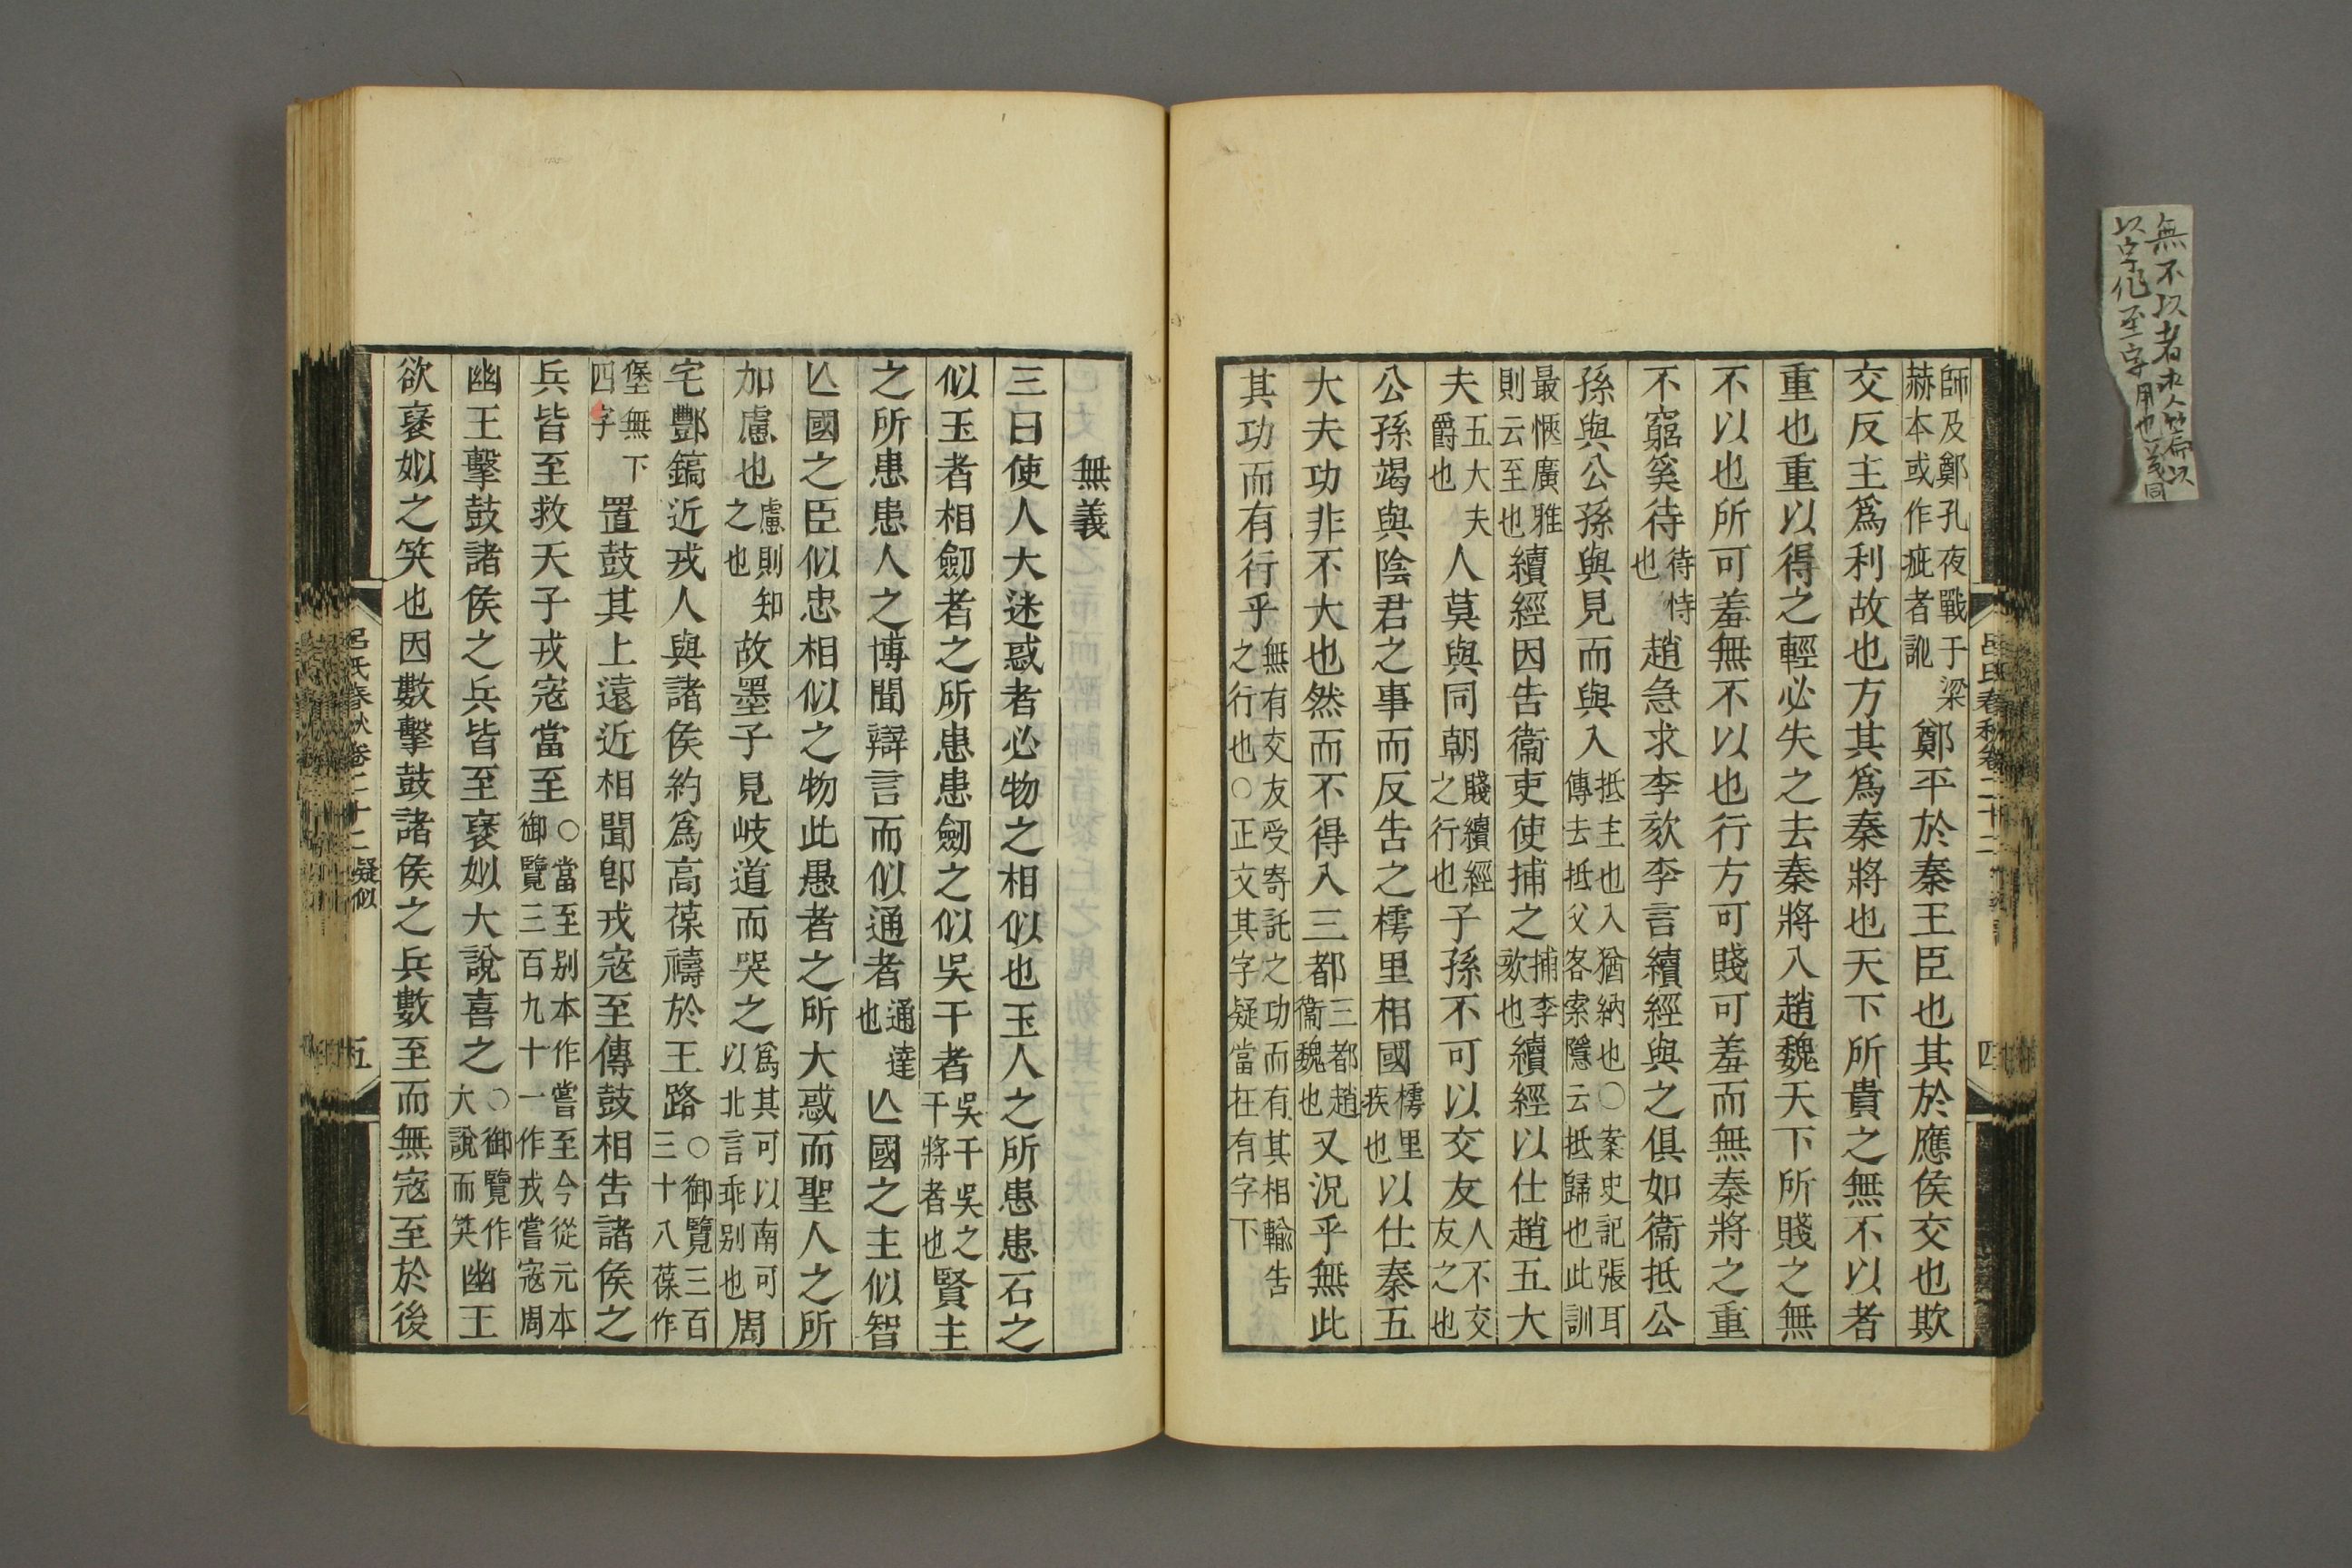 師及鄭孔夜戰于梁赫本或作疵者訛鄭平於秦王臣也其於應侯交也欺
交反主爲利故也方其爲秦將也天下所貴之無不以者
重也重以得之輕必失之去秦將入趙魏天下所賤之無
不以也所可羞無不以也行方可賤可羞而無秦將之重
不窮奚待待恃也趙急求李欬李言續經與之俱如衞抵公
孫與公孫與見而與入抵主也入猶納也○案史記張耳傳去抵父客索隱云抵歸也此訓
最愜廣雅則云至也續經因告衞吏使捕之捕李欬也續經以仕趙五大
夫五大夫爵也人莫與同朝賤續經之行也子孫不可以交友人不交友之也
公孫竭與陰君之事而反告之樗里相國樗里疾也以仕秦五
大夫功非不大也然而不得入三都三都趙衞魏也又況乎無此
其功而有行乎無有交友受寄託之功而有其相輸告之行也○正文其字疑當在有字下
呂氏春秋卷二十二
四
無義
三曰使人大迷惑者必物之相似也玉人之所患患石之
似玉者相劒者之所患患劒之似吳干者吳干吳之干將者也賢主
之所患患人之博聞辯言而似通者通達也亾國之主似智
亾國之臣似忠相似之物此愚者之所大惑而聖人之所
加慮也慮則知之也故墨子見岐道而哭之爲其可以南可以北言乖别也周
宅酆鎬近戎人與諸侯約爲高葆禱於王路○御覽三百三十八葆作
堡無下四字置鼓其上遠近相聞卽戎寇至傳鼓相告諸侯之
兵皆至救天子戎寇當至○當至别本作嘗至今從元本御覽三百九十一作戎嘗寇周
幽王擊鼓諸侯之兵皆至褒姒大說喜之○御覽作大說而笑幽王
欲褒姒之笑也因數擊鼓諸侯之兵數至而無寇至於後
呂氏春秋卷二十二 疑似
五
無不以者求人篇以
以字作至字用也義同